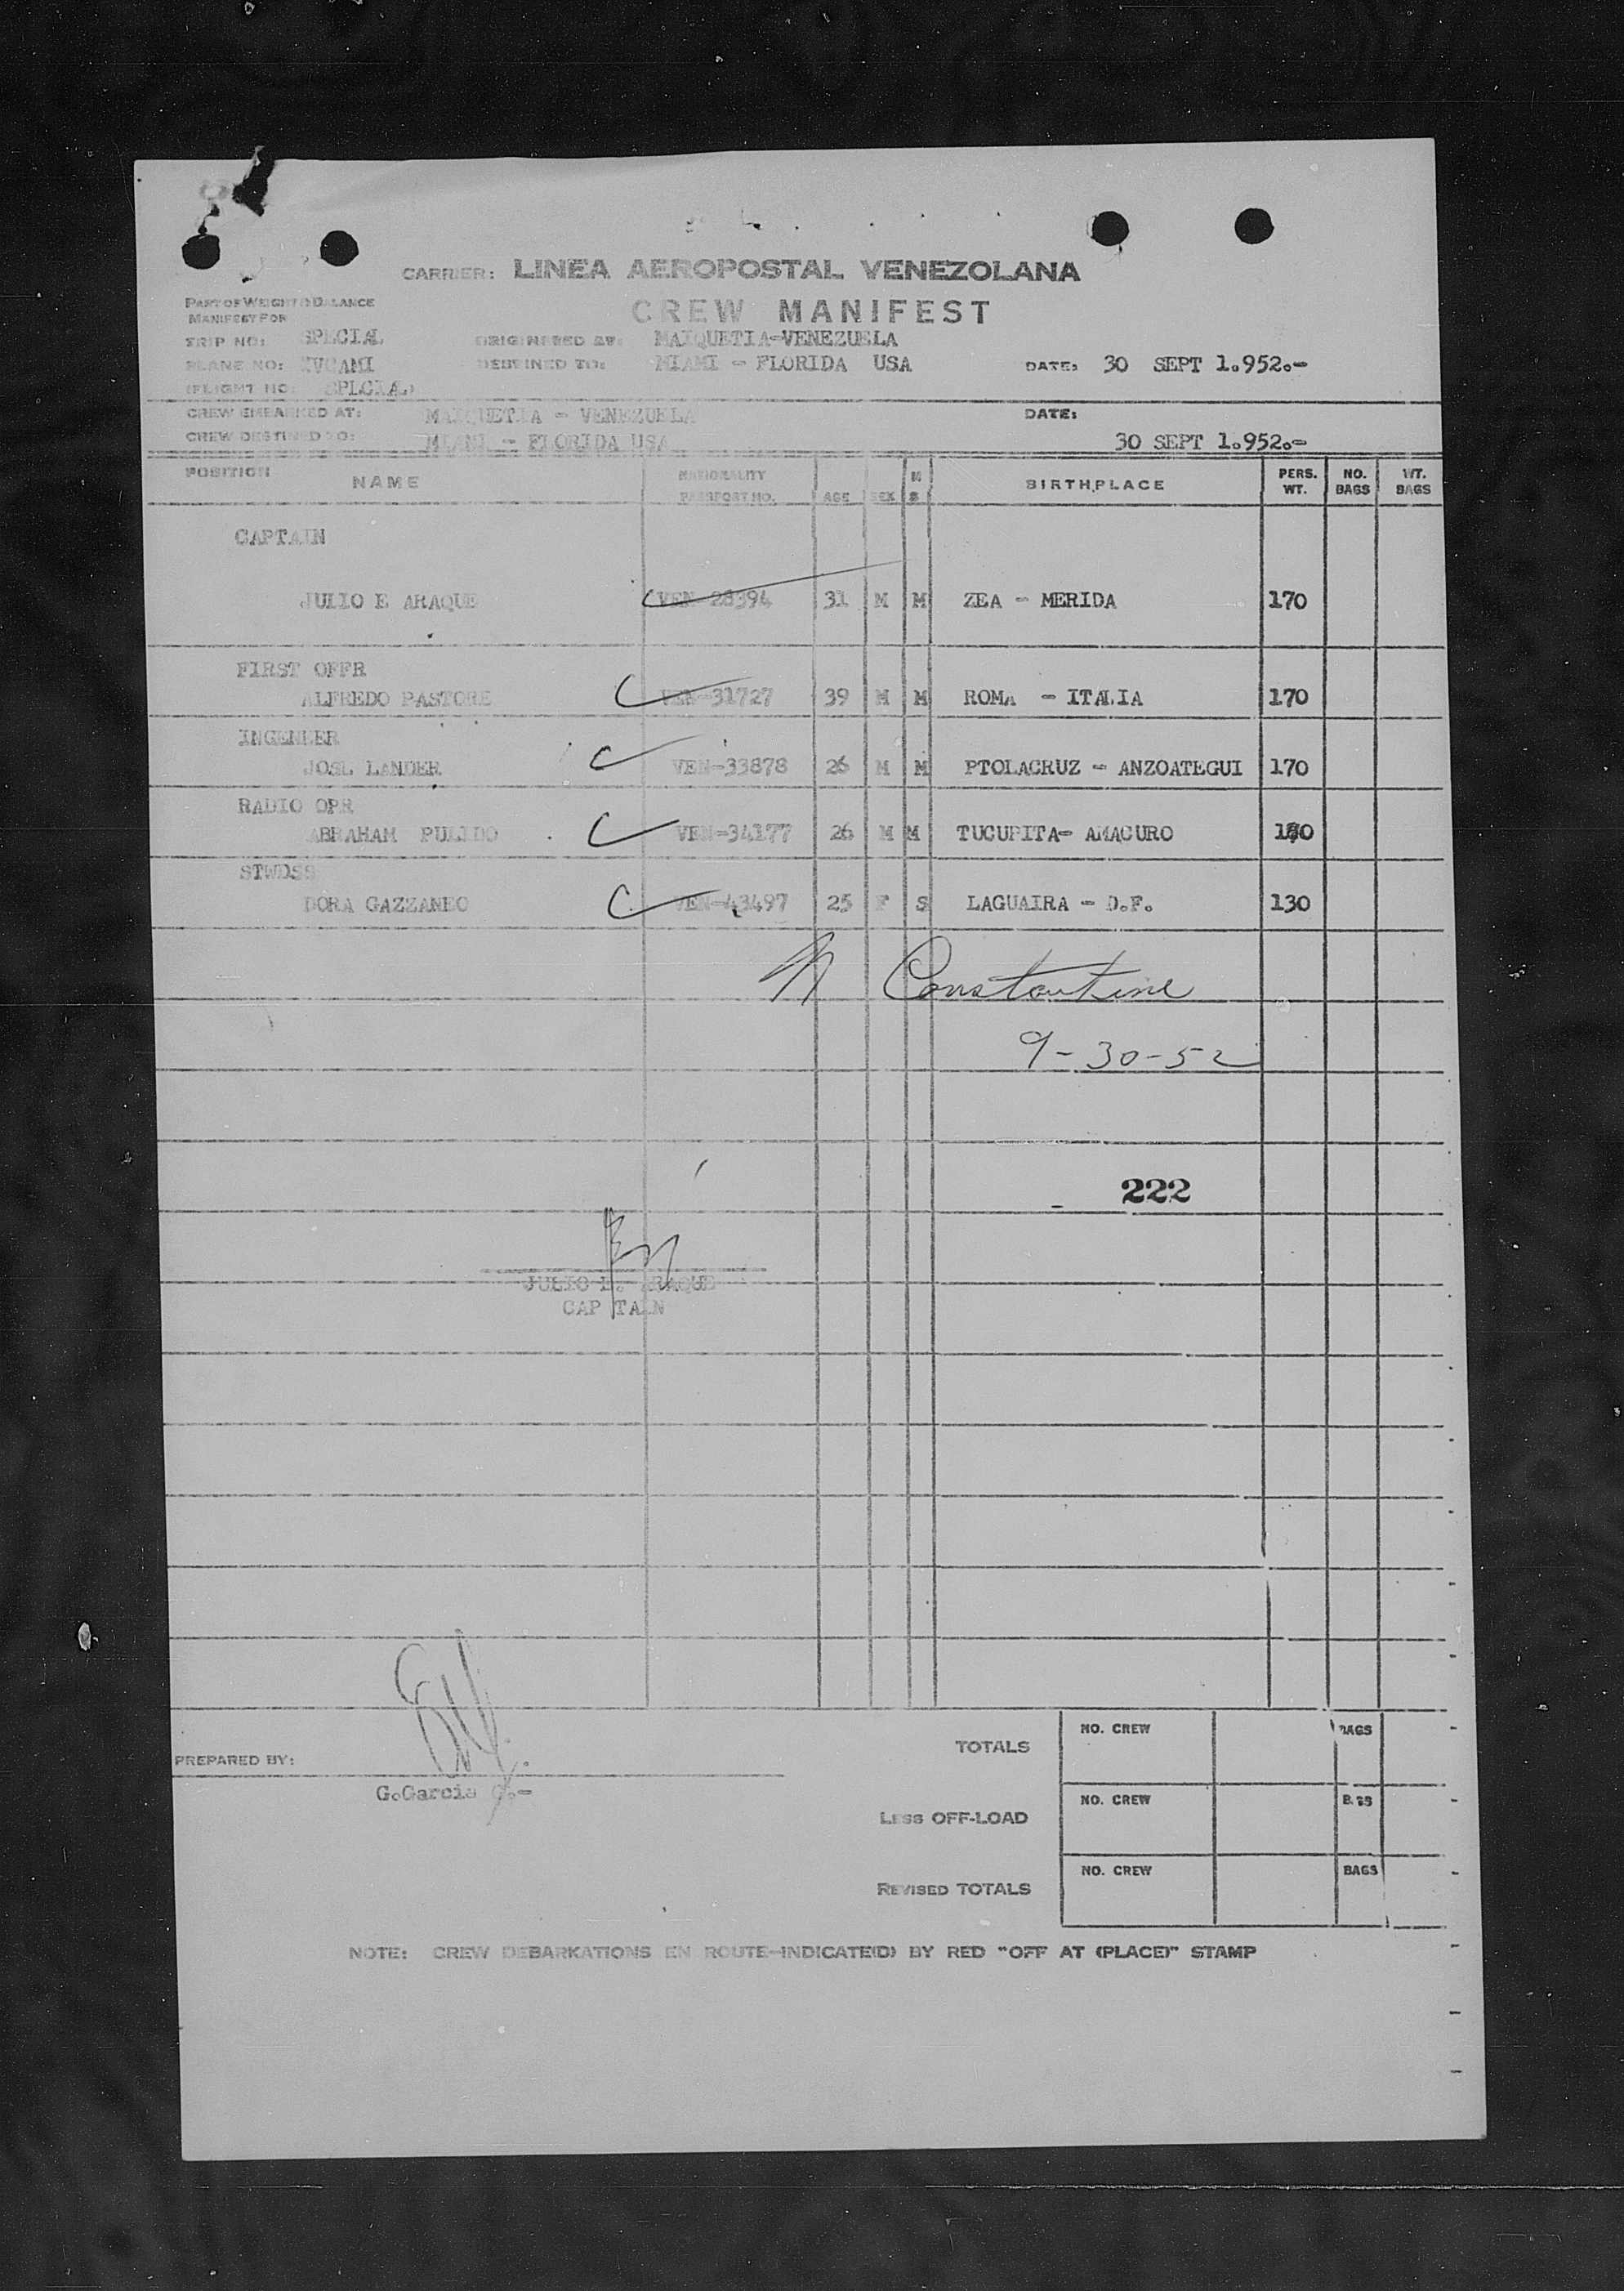 CARRIER: LINEA AEROPOSTAL VENEZOLANA
PART OF WEIGHT & BALANCE
MANIFEST FOR
CREW MANIFEST
TRIP NO: SPECIAL ORIGINATED AT: MAIQUETIA-VENEZUELA
PLANE NO: YVCAMI DESTINED TO: MIAMI - FLORIDA USA DATE: 30 SEPT 1.952.-
(FLIGHT NO: SPECIAL)
CREW EMBARKED AT: MAIQUETIA - VENEZUELA DATE:
CREW DESTINED TO: MIAMI - FLORIDA USA 30 SEPT 1.952.-
POSITION NAME NATIONALITY PASSPORT NO. AGE SEX M S BIRTHPLACE PERS. WT. NO. BAGS WT. BAGS
CAPTAIN
JULIO E ARAQUE VEN-28394 31 M M ZEA - MERIDA 170
FIRST OFFR
ALFREDO PASTORE VEN-31727 39 M M ROMA - ITALIA 170
INGENEER
JOSE LANDER VEN-33878 26 M M PTOLACRUZ - ANZOATEGUI 170
RADIO OPR
ABRAHAM PULIDO VEN-34177 26 M M TUCUPITA- AMACURO
STWDSS
DORA GAZZANEO VEN-43497 25 F S LAGUAIRA - D.F. 130
N Constantine
9-30-52
222
JULIO E. ARAQUE
CAPTAIN
PREPARED BY:
G.Garcia G.-
TOTALS NO. CREW BAGS
LESS OFF-LOAD NO. CREW BAGS
REVISED TOTALS NO. CREW BAGS
NOTE: CREW DEBARKATIONS EN ROUTE-INDICATE(D) BY RED "OFF AT (PLACE)" STAMP